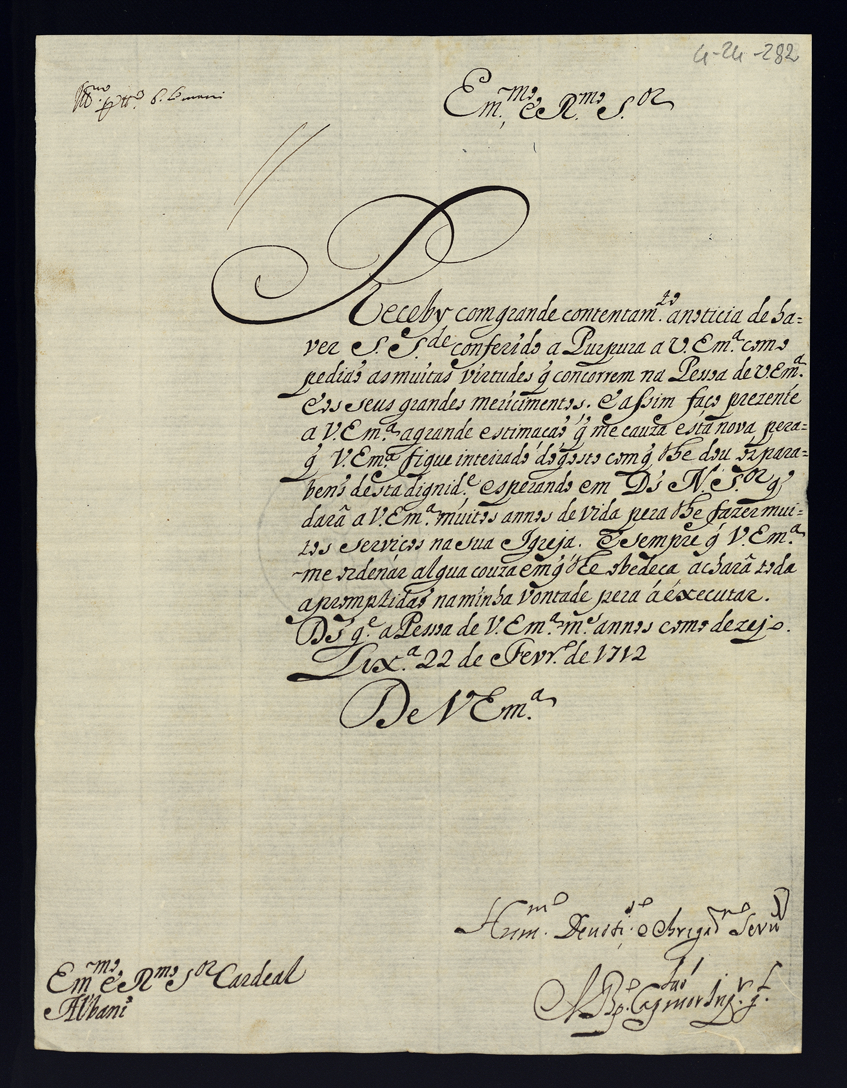 4-24-282
Em.mo e R.mo S.or
Receby com grande contentam.to a noticia de ha-
ver S. S.de conferido a Purpura a V. Em.a como
pediaõ as muitas virtudes q̃ concorrem na Pessoa de V. Em.a
e os seus grandes mericimentos. E assim faço prezente
a V. Em.a a grande estimacaõ q̃ me cauza esta nova, pera-
q̃ V. Em.a fique inteirado do gosto com q̃ lhe dou os para-
bens desta dignid.e esperando em Ds N. S.or q̃
darâ a V. Em.a muitos annos de vida pera lhe fazer mui-
tos serviços na sua Igreja. E sempre q̃ V. Em.a
me ordenar algua couza em q̃ lhe obedeca acharâ toda
a promptidaõ na minha vontade pera a executar.
Ds g.e a Pessoa de V. Em.a m.s annos como dezejo.
Lix.a 22 de Fevr.o de 1712
De V Em.a
Hum.mo Devoti. e obrigad.mo Servu
Em.mo e R.mo S.or Cardeal
Albani